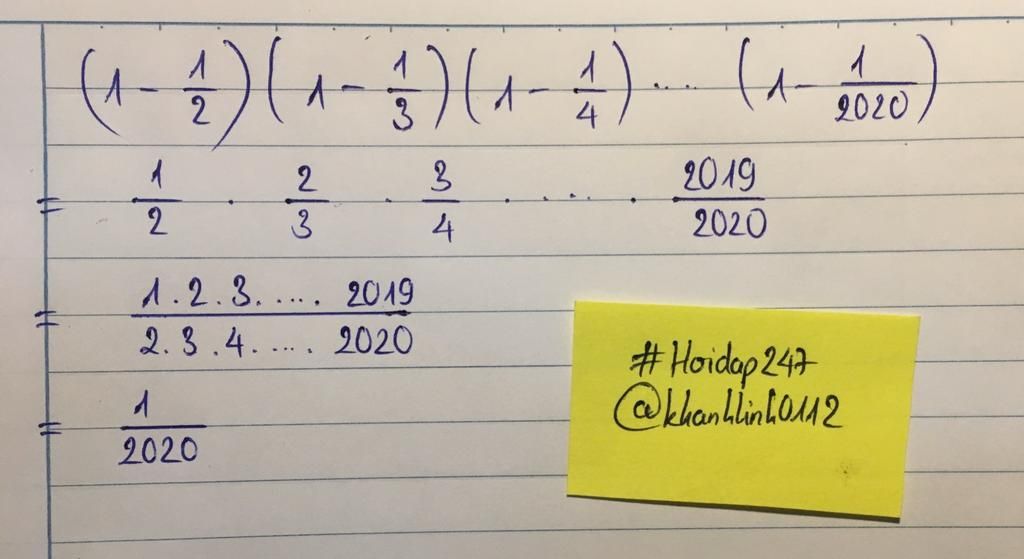 (1 - 1/2) (1 - 1/3) (1 - 1/4) .... (1 - 1/2020)
= 1/2 . 2/3 . 3/4 . .... . 2019/2020
= 1.2.3. .... 2019 / 2.3.4. .... 2020
= 1/2020
#Hoidap247
@khanhlinh0112